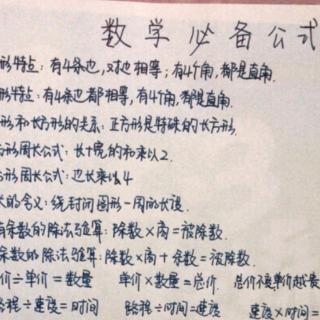 数学必备公式
形特点：有4条边，对边相等；有4个角，都是直角.
形特点：有4条边都相等，有4个角，都是直角.
形和长方形的关系：正方形是特殊的长方形.
方形周长公式：长+宽的和乘以2.
方形周长公式：边长乘以4
长的含义：绕封闭图形一周的长度.
有余数的除法验算：除数×商=被除数.
余数的除法验算：除数×商+余数=被除数.
价÷单价=数量 单价×数量=总价
路程÷速度=时间 路程÷时间=速度 速度×时间=